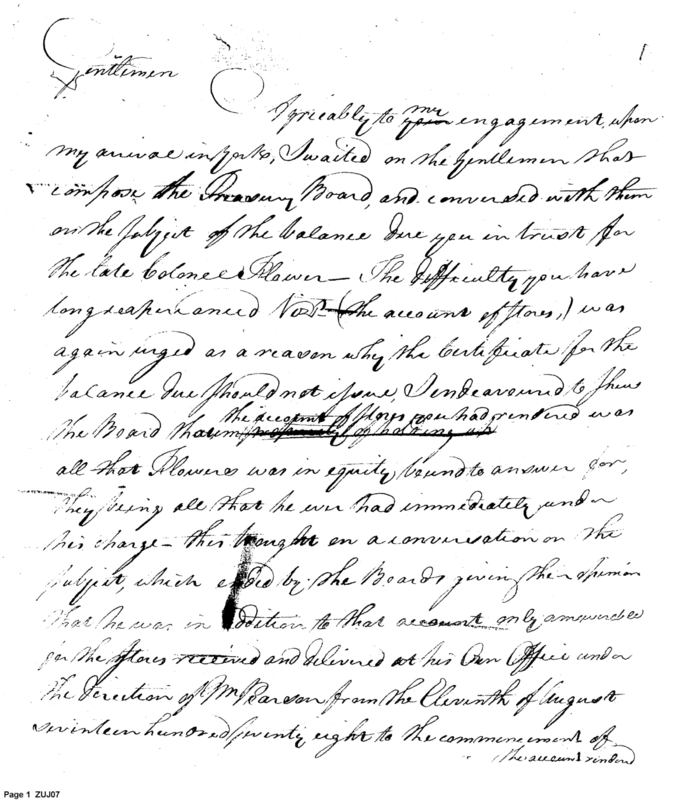 1
Gentlemen
Agreeably to my your engagement, upon
my arival in York, I waited on the Gentlemen that
compose the Treasury Board, and conversed with them
on the subject of the balance due you in trust for
the late Colonel Flower — The difficulty you have
long experienced Vizt. (the account of stores,) was
again urged as a reason why the Certificate for the
balance due should not issue, I endeavourd to shew
the account of stores you had rendered was
the Board that of holding up
all that Flower was in equity bound to answer for,
they being all that he ever had immediately under
his charge — this brought on a conversation on the
subject, which ended by the Boards giving their opinion
that he was in addition to that account only answerable
for the stores received and delivered at his Own Office under
the direction of Mr. Pearson from the Eleventh of August
seventeen hundred seventy eight to the commencement of
the account renderd
Page 1 ZUJ07